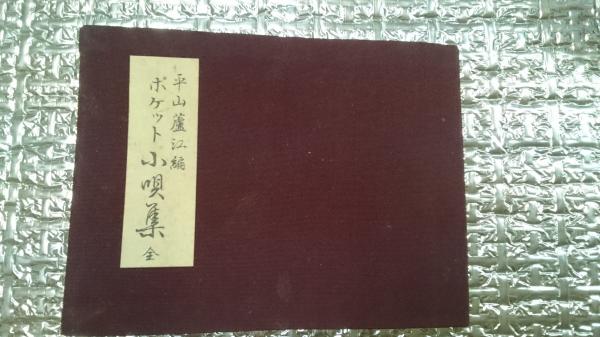 平山蘆江編
ポケット小唄集 全